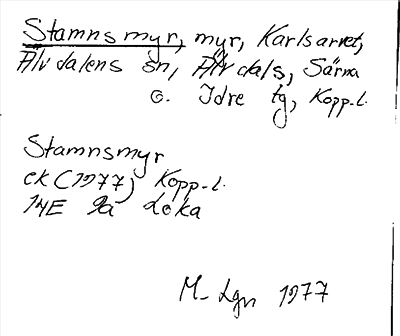 Stamnsmyr, myr, Karlsarvet,
Älvdalens sn, Älvdals, Särna
o. Idre tg, Kopp.l.
Stamnsmyr
ek (1977) Kopp.l.
14E 9a Loka
M. Lgn 1977